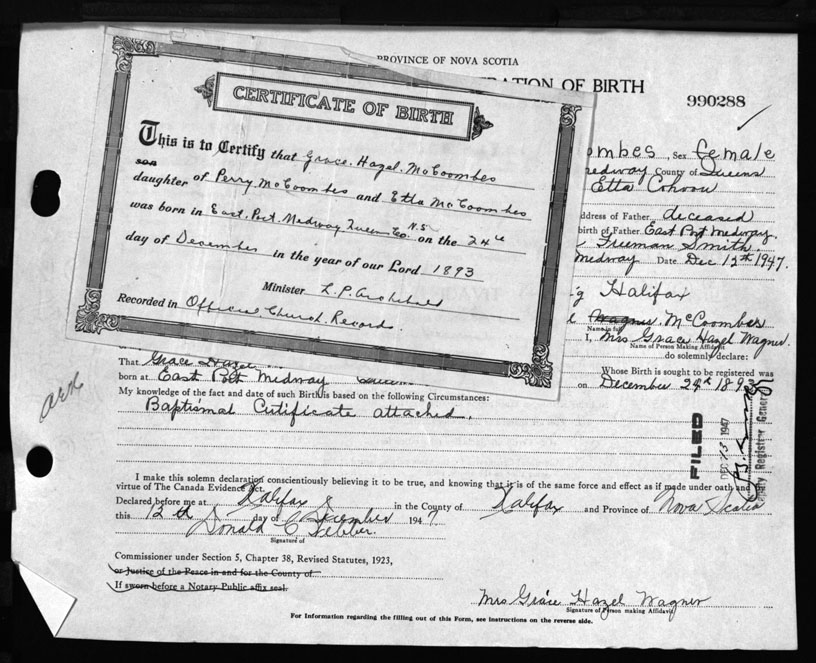 PROVINCE OF NOVA SCOTIA
RATION OF BIRTH
990288
CERTIFICATE OF BIRTH
This is to Certify that Grace Hazel McCoombes
son
daughter of Perry McCoombes and Etta McCoombes
was born in East Port Medway Queens Co. N.S. on the 24th
day of December in the year of our Lord 1893
Minister L. P. Archibald
Recorded in Official Church Record.
ombes, Sex female
medway County of Queens
Etta Cohoon
ddress of Father deceased
birth of Father East Port Medway.
Freeman Smith.
medway Date Dec 12th 1947.
Halifax
Wagner McCoombes
Name in full
I, Mrs Grace Hazel Wagner.
Name of Person Making Affidavit
do solemnly declare:
That Grace Hazel
Whose Birth is sought to be registered was
born at East Port Medway on December 24th 189
My knowledge of the fact and date of such Birth is based on the following Circumstances:
Baptismal Cirtificate attached.
FILED
DEC 13 1947
Deputy Registrar General
ack
I make this solemn declaration conscientiously believing it to be true, and knowing that it is of the same force and effect as if made under oath and by
virtue of The Canada Evidence Act.
Declared before me at Halifax in the County of Halifax and Province of Nova Scotia
this 12th day of December 1947
Donald C
Signature of
Commissioner under Section 5, Chapter 38, Revised Statutes, 1923,
or Justice of the Peace in and for the County of
If sworn before a Notary Public affix seal.
Mrs Grace Hazel Wagner
Signature of Person making Affidavit
For Information regarding the filling out of this Form, see instructions on the reverse side.